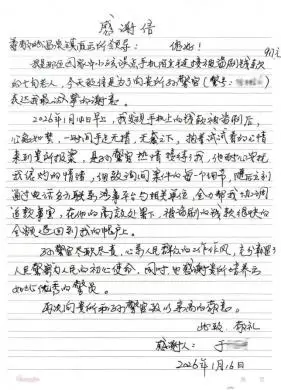 感谢信
尊敬的温泉镇派出所领导：您好！
我是那位因家中小孩误点手机链接被盗刷钱款
的七旬老人，今天致信是为了向贵所孙警官（警号：
表达我最诚挚的谢意。
2026年1月10日早上，我发现手机上的钱款被盗刷后，
心急如焚，一时间手足无措，无奈之下，抱着试试看的心情
来到贵所报案，是孙警官热情接待了我，他耐心安抚
我焦灼的情绪，细致询问案件的每一个细节，随后立刻
通过电话多方联系涉事平台与相关单位，全力帮我协调
退款事宜，在他的高效处置下，被盗刷的钱款很快的
全额退回到我的帐户上。
孙警官尽职尽责，心系人民群众的工作作风，充分彰显了
人民警察为人民的初心使命，同时也感谢贵所培养出
如此优秀的警员。
再次向贵所和孙警官致以崇高的敬意。
此致 敬礼
感谢人：于
2026年1月16日